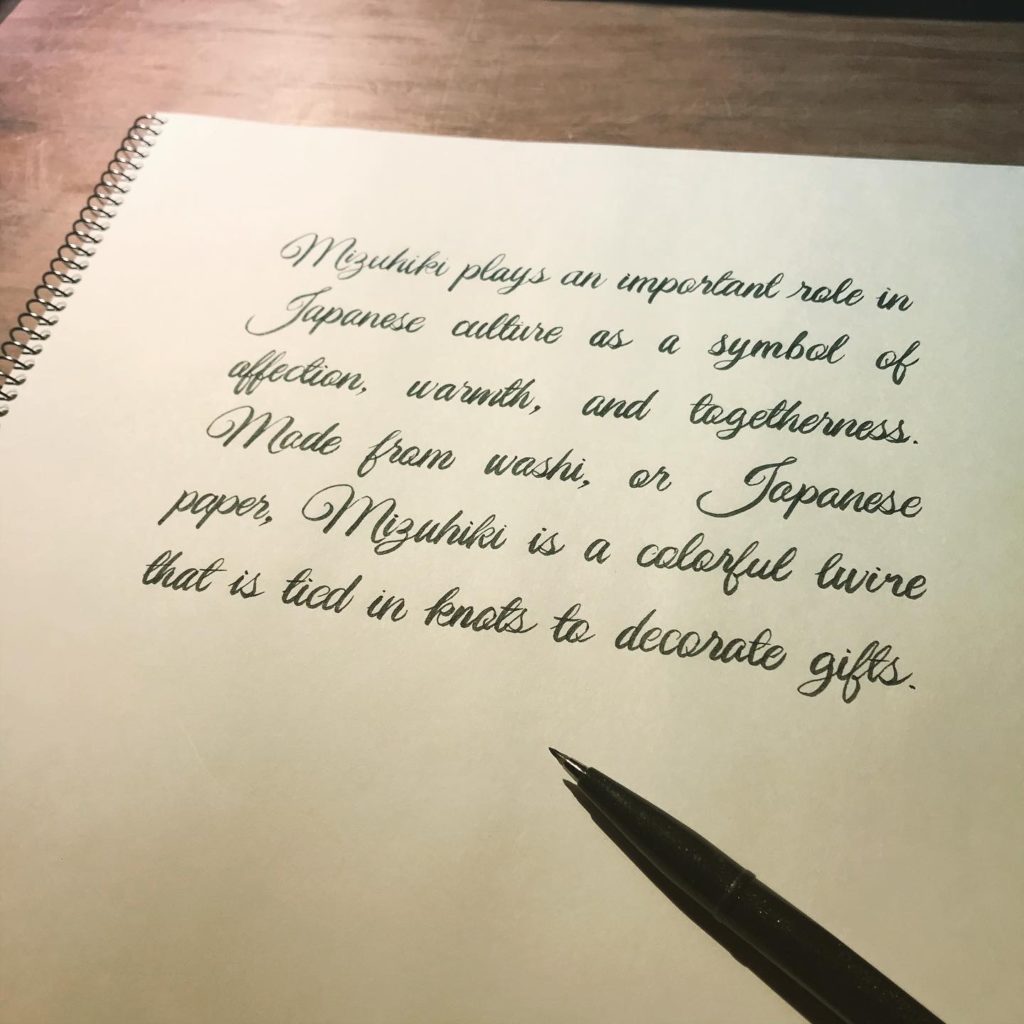 Mizuhiki plays an important role in
Japanese culture as a symbol of
affection, warmth, and togetherness.
Made from washi, or Japanese
paper, Mizuhiki is a colorful lwire
that is tied in knots to decorate gifts.